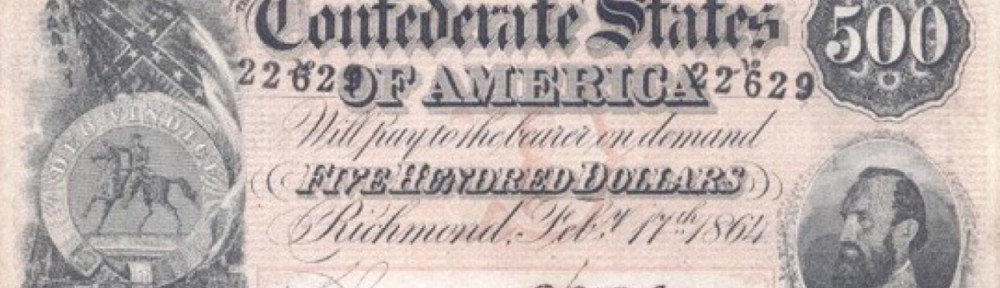 Confederate States
500
22629 OF AMERICA 22629
DEO VINDICE
Will pay to the bearer on demand
FIVE HUNDRED DOLLARS
Richmond, Feb.y 17th 1864